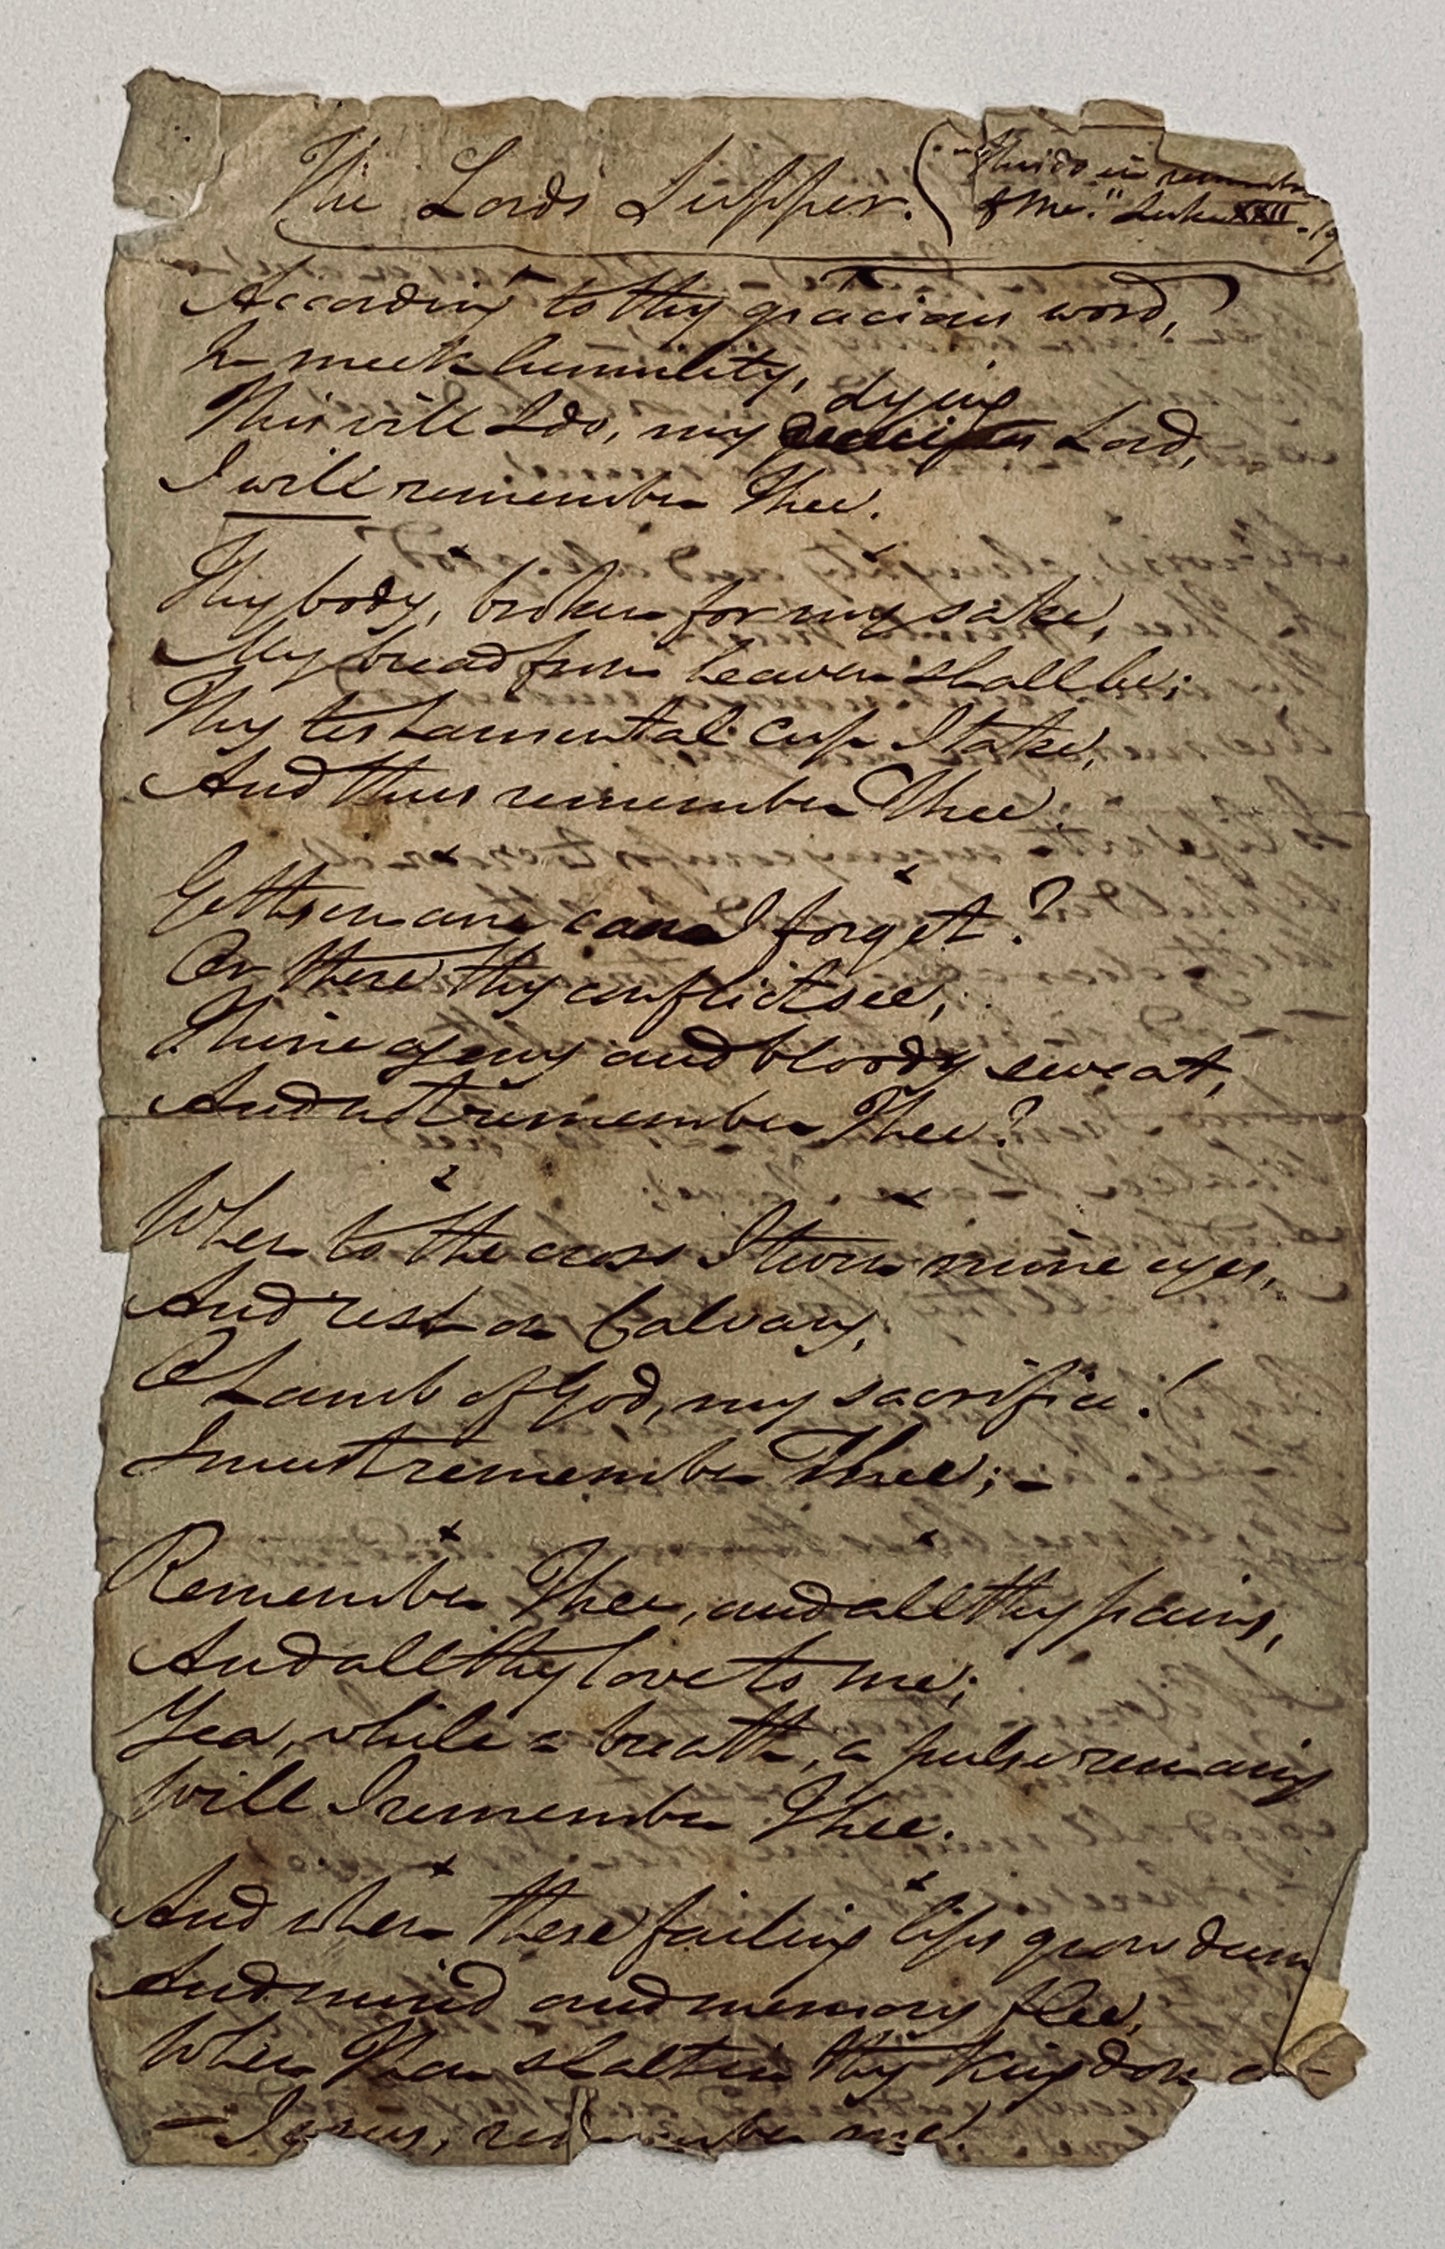 The Lord's Supper. ("This do in remembra
of Me." Luke XXII. 19
According to thy gracious word,
In meek humility,
dying
This will I do, my Lord,
I will remember Thee.
Thy body, broken for my sake,
My bread from heaven shall be;
Thy testamental cup I take,
And thus remember Thee.
Gethsemane can I forget?
Or there thy conflict see,
Thine agony and bloody sweat,
And not remember Thee?
When to the cross I turn mine eyes,
And rest on Calvary,
O Lamb of God, my sacrifice!
I must remember Thee;—
Remember Thee, and all thy pains,
And all thy love to me;
Yea, while a breath, a pulse remains
Will I remember Thee.
And when these failing lips grow dumb
And mind and memory flee,
When Thou shalt in Thy kingdom
— Jesus, remember me